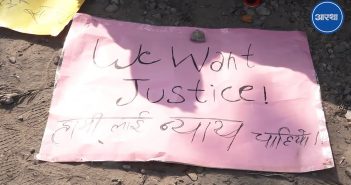 आरथा
We Want
Justice!
हामी लाई न्याय चाहियो।